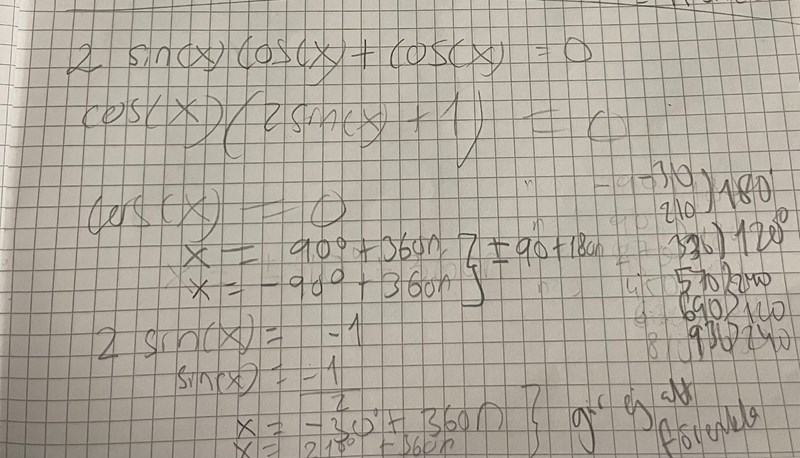 2 sin(x) cos(x) + cos(x) = 0
cos(x) (2sin(x) + 1) = 0
cos(x) = 0
x = 90° + 360n } ± 90 + 180n
x = -90° + 360n
2 sin(x) = -1
sin(x) = -1/2
x = -30° + 360n } går ej att förenkla
x = 210° + 360n
-30
210 ) 180
330 ) 120°
570 ) 240
690 ) 120
930 ) 240